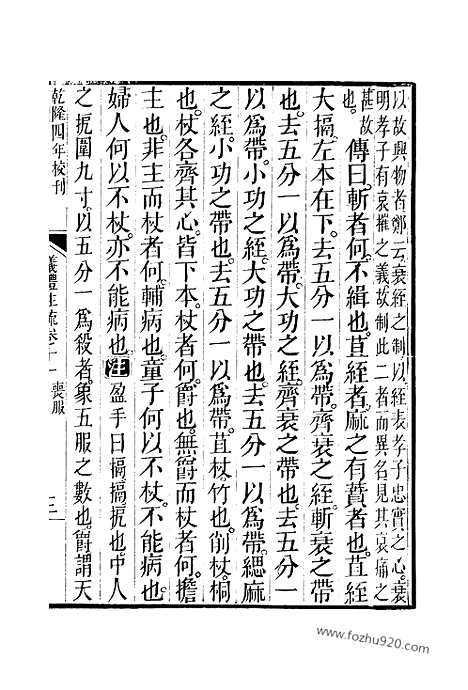 以故與物者鄭云衰絰之制以絰表孝子忠實之心衰
明孝子有哀摧之義故制此二者而異名見其哀痛之
甚故
也。傳曰。斬者何。不緝也。苴絰者。麻之有蕡者也。苴絰
大搹。左本在下。去五分一以爲帶。齊衰之絰。斬衰之帶
也。去五分一以爲帶。大功之絰。齊衰之帶也。去五分一
以爲帶。小功之絰。大功之帶也。去五分一以爲帶。緦麻
之絰。小功之帶也。去五分一以爲帶。苴杖。竹也。削杖。桐
也。杖各齊其心。皆下本。杖者何。爵也。無爵而杖者何。擔
主也。非主而杖者何。輔病也。童子何以不杖。不能病也。
婦人何以不杖。亦不能病也。注盈手曰搹。搹扼也。中人
之扼圍九寸。以五分一爲殺者。象五服之數也。爵謂天
乾隆四年校刊
儀禮注疏卷十一 喪服
三
www.fozhu920.com